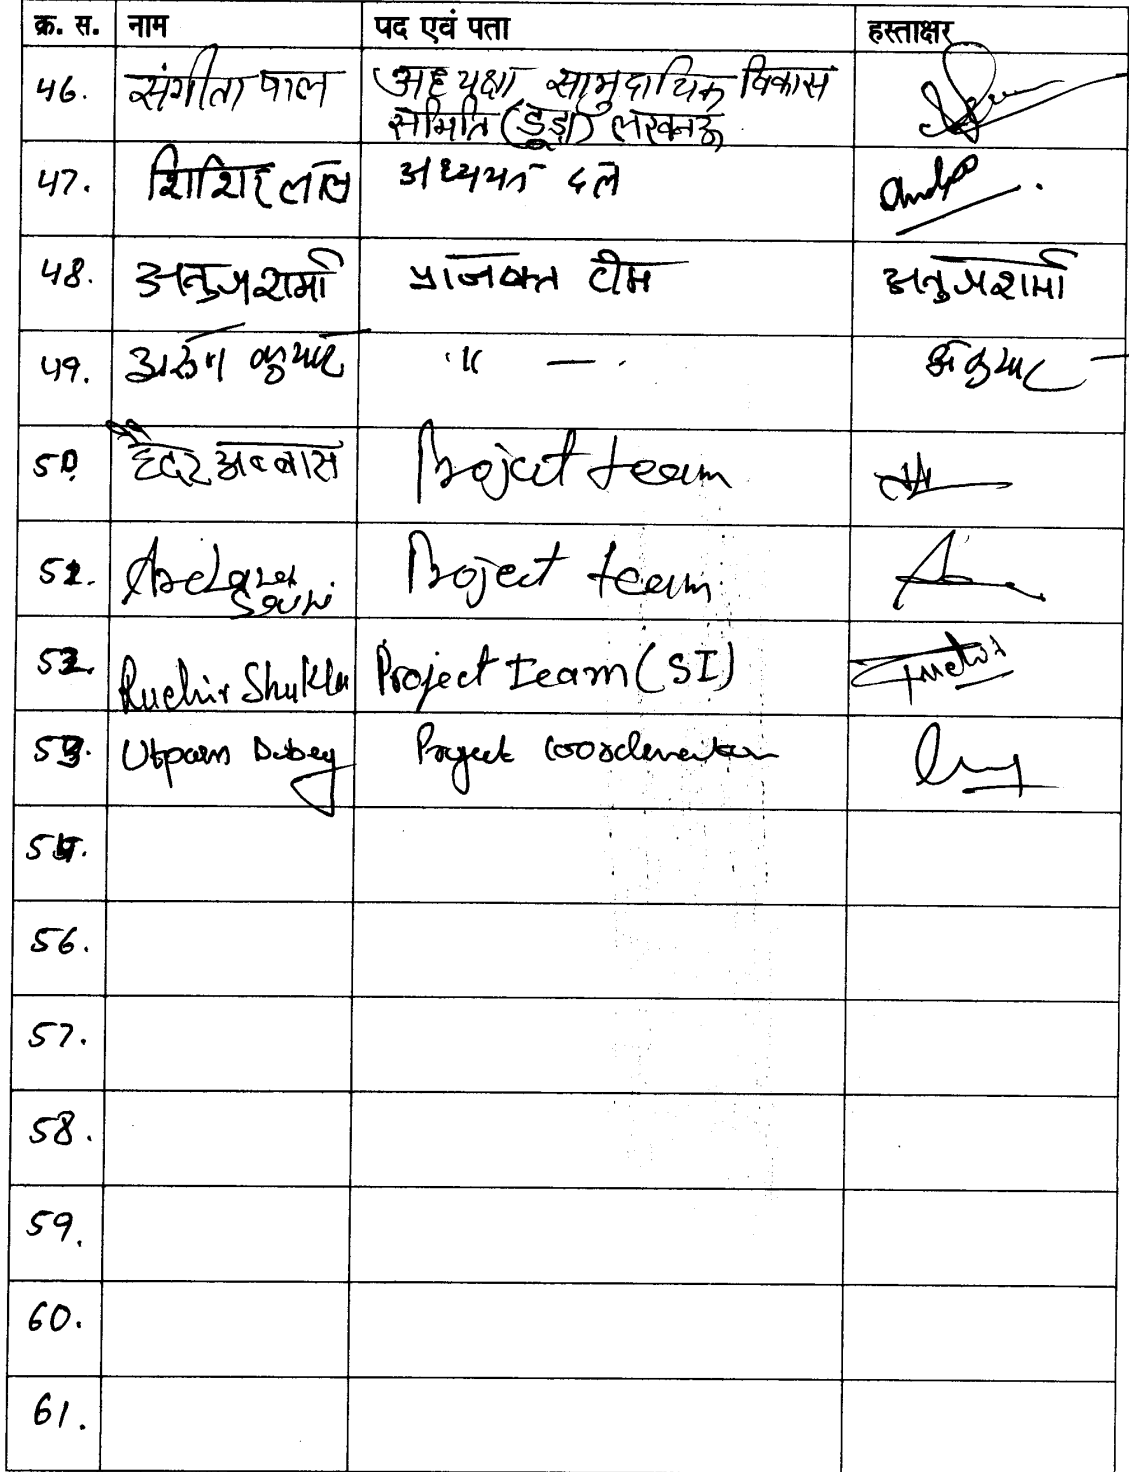 क्र. स. नाम पद एवं पता हस्ताक्षर
46. संगीता पाल अध्यक्षा सामुदायिक विकास
समिति (डूडा) लखनऊ
47. शिशिर लाल अध्ययन दल
48. अनुज शर्मा प्रोजेक्ट टीम अनुज शर्मा
49. अरुन कुमार " — . अ कुमार
50. हैदर अब्बास Project team
51. Project team
52. Ruchir Shukla Project Team (SI)
53. Dubey Project Coordinator
54.
56.
57.
58.
59.
60.
61.